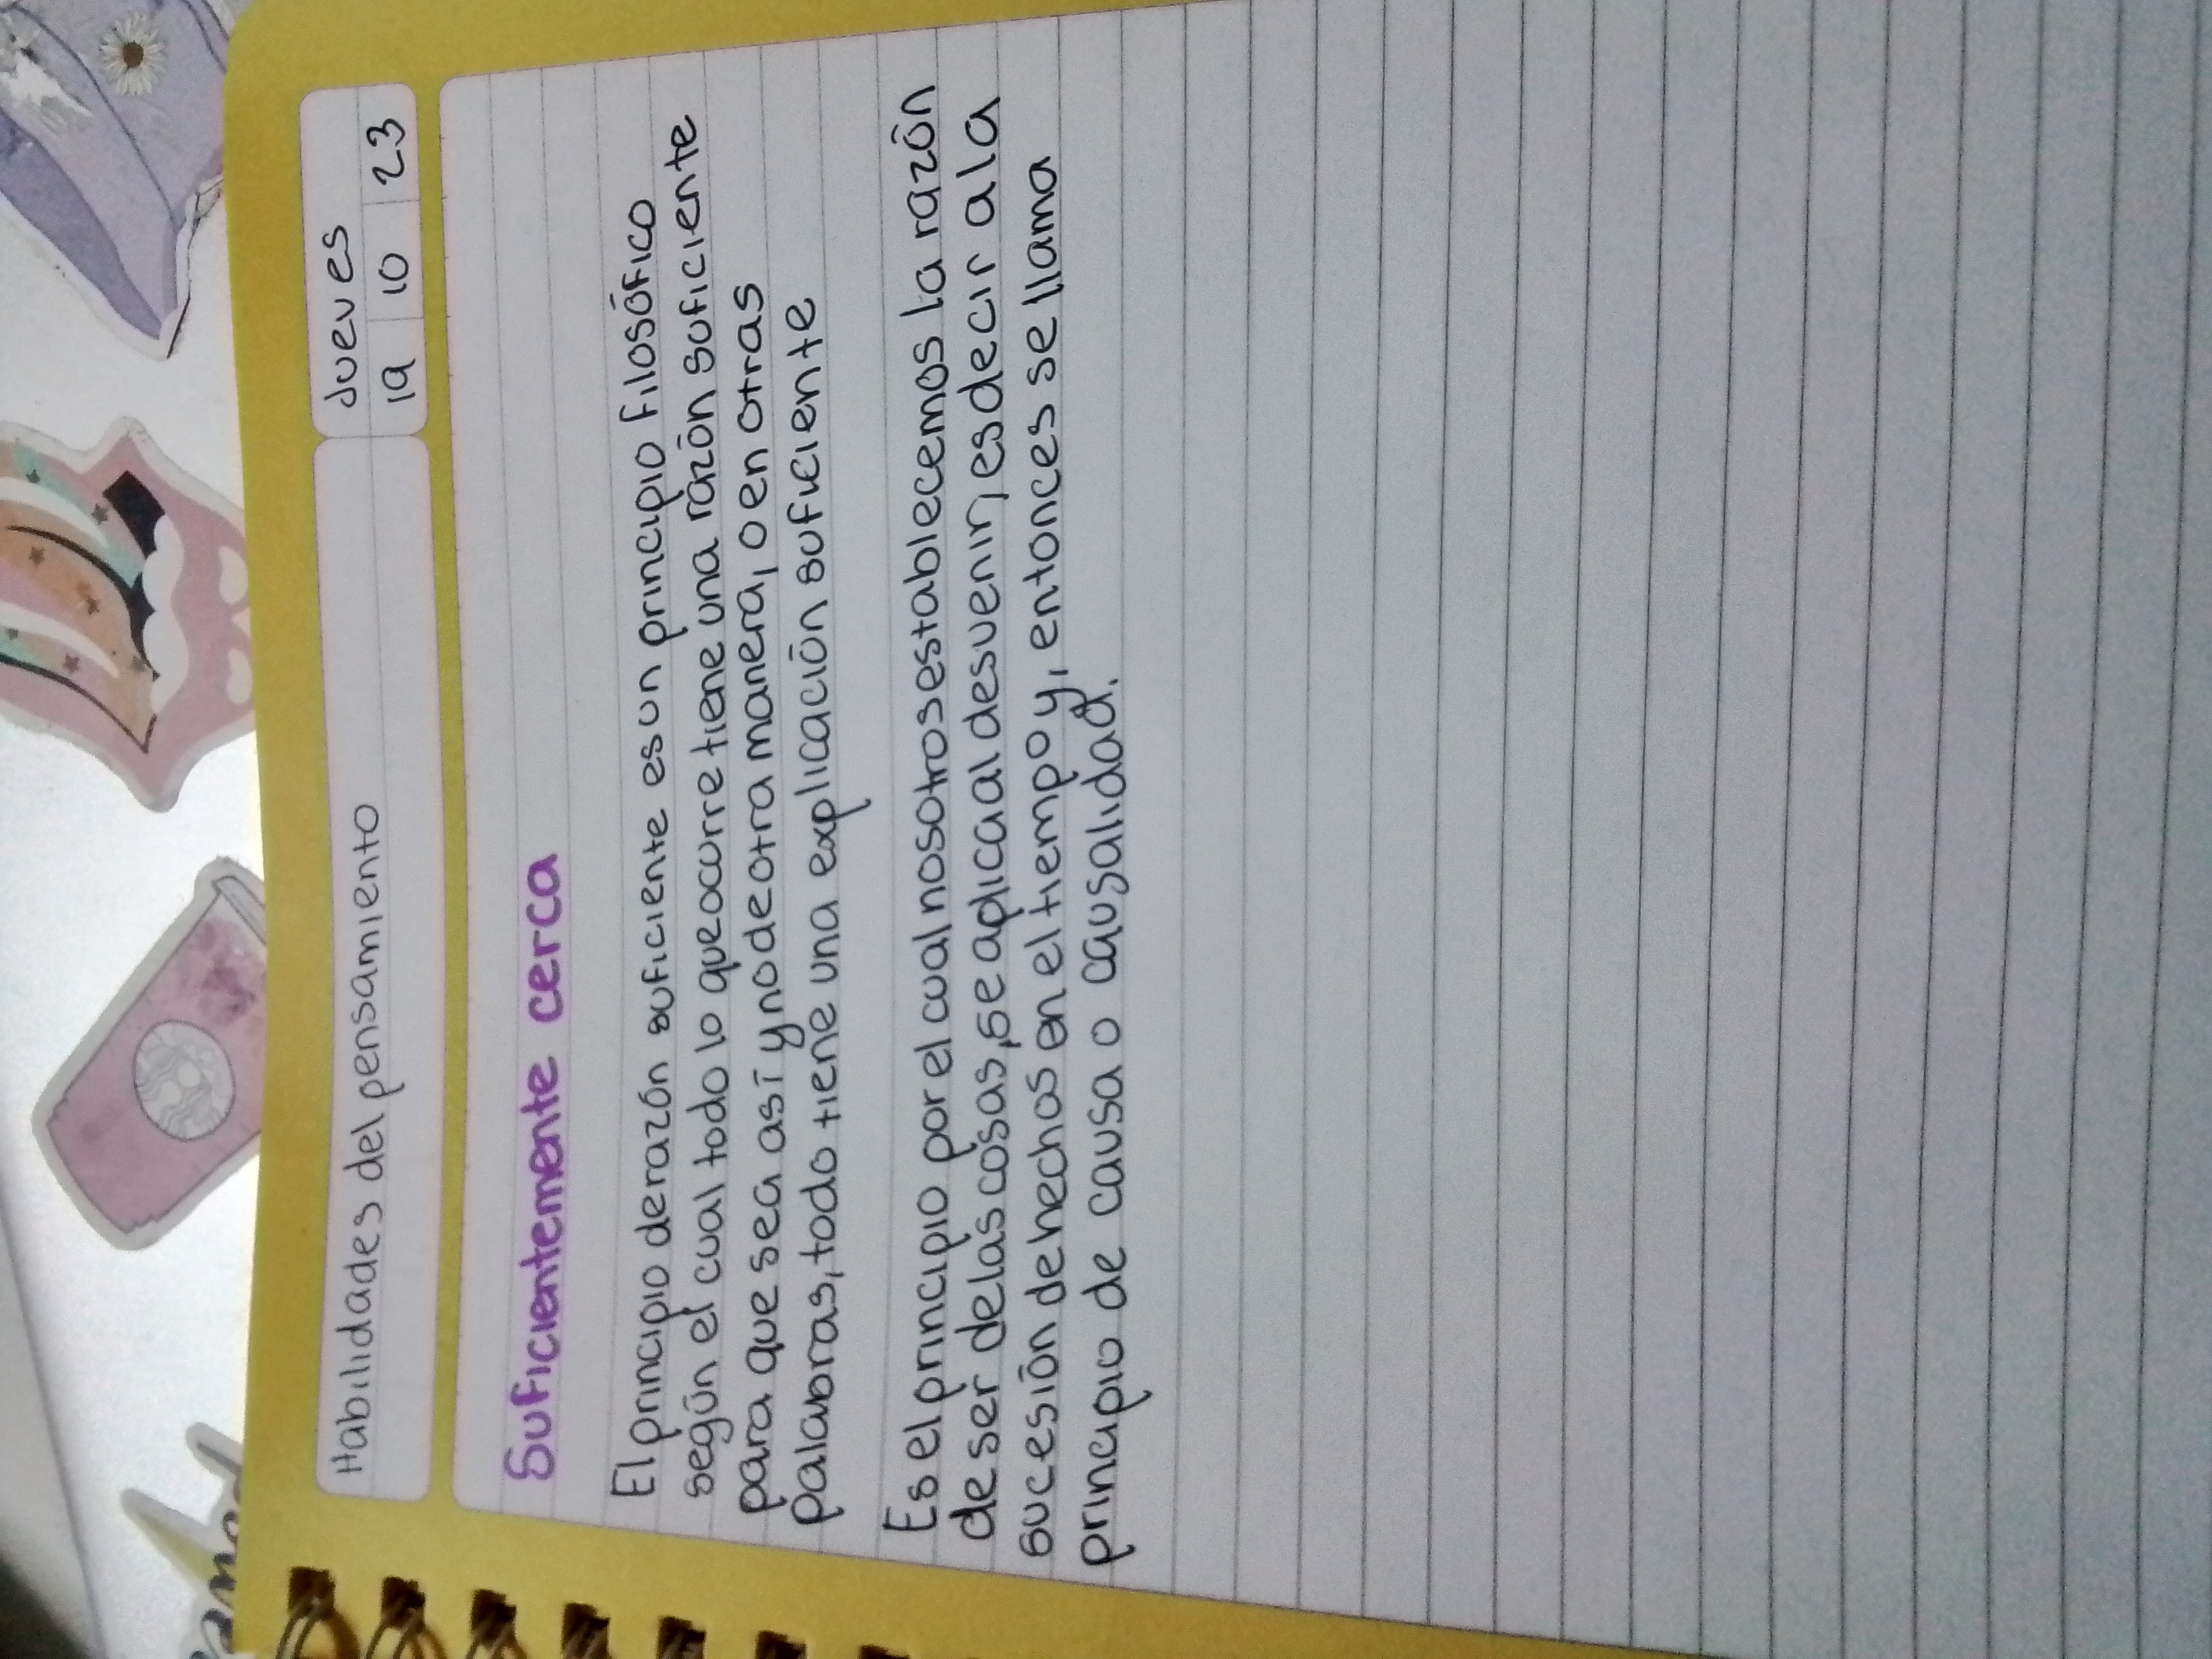 Habilidades del pensamiento
Jueves
19 10 23
Suficientemente cerca
El principio de razón suficiente es un principio filosófico
según el cual todo lo que ocurre tiene una razón suficiente
para que sea así y no de otra manera, o en otras
palabras, todo tiene una explicación suficiente
Es el principio por el cual nosotros establecemos la razón
de ser de las cosas, se aplica al desvenir, es decir a la
sucesión de hechos en el tiempo y, entonces se llama
principio de causa o causalidad.